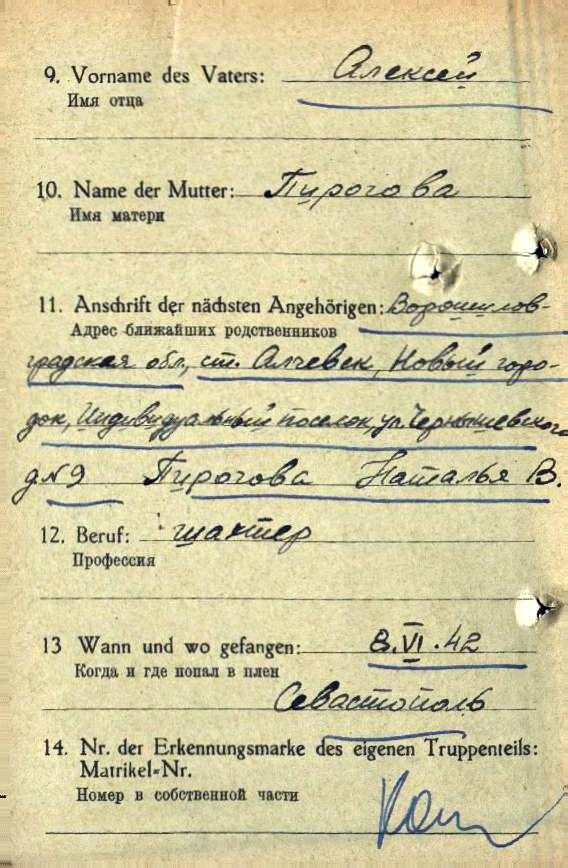 9. Vorname des Vaters: Алексей
Имя отца
10. Name der Mutter: Пирогова
Имя матери
11. Anschrift der nächsten Angehörigen: Ворошилов-
Адрес ближайших родственников
градская обл., ст. Алчевск, Новый горо-
док, Индивидуальный поселок, ул. Чернышевского
д№9 Пирогова Наталья В.
12. Beruf: шахтер
Профессия
13 Wann und wo gefangen: 8.VI.42
Когда и где попал в плен
Севастополь
14. Nr. der Erkennungsmarke des eigenen Truppenteils:
Matrikel-Nr.
Номер в собственной части